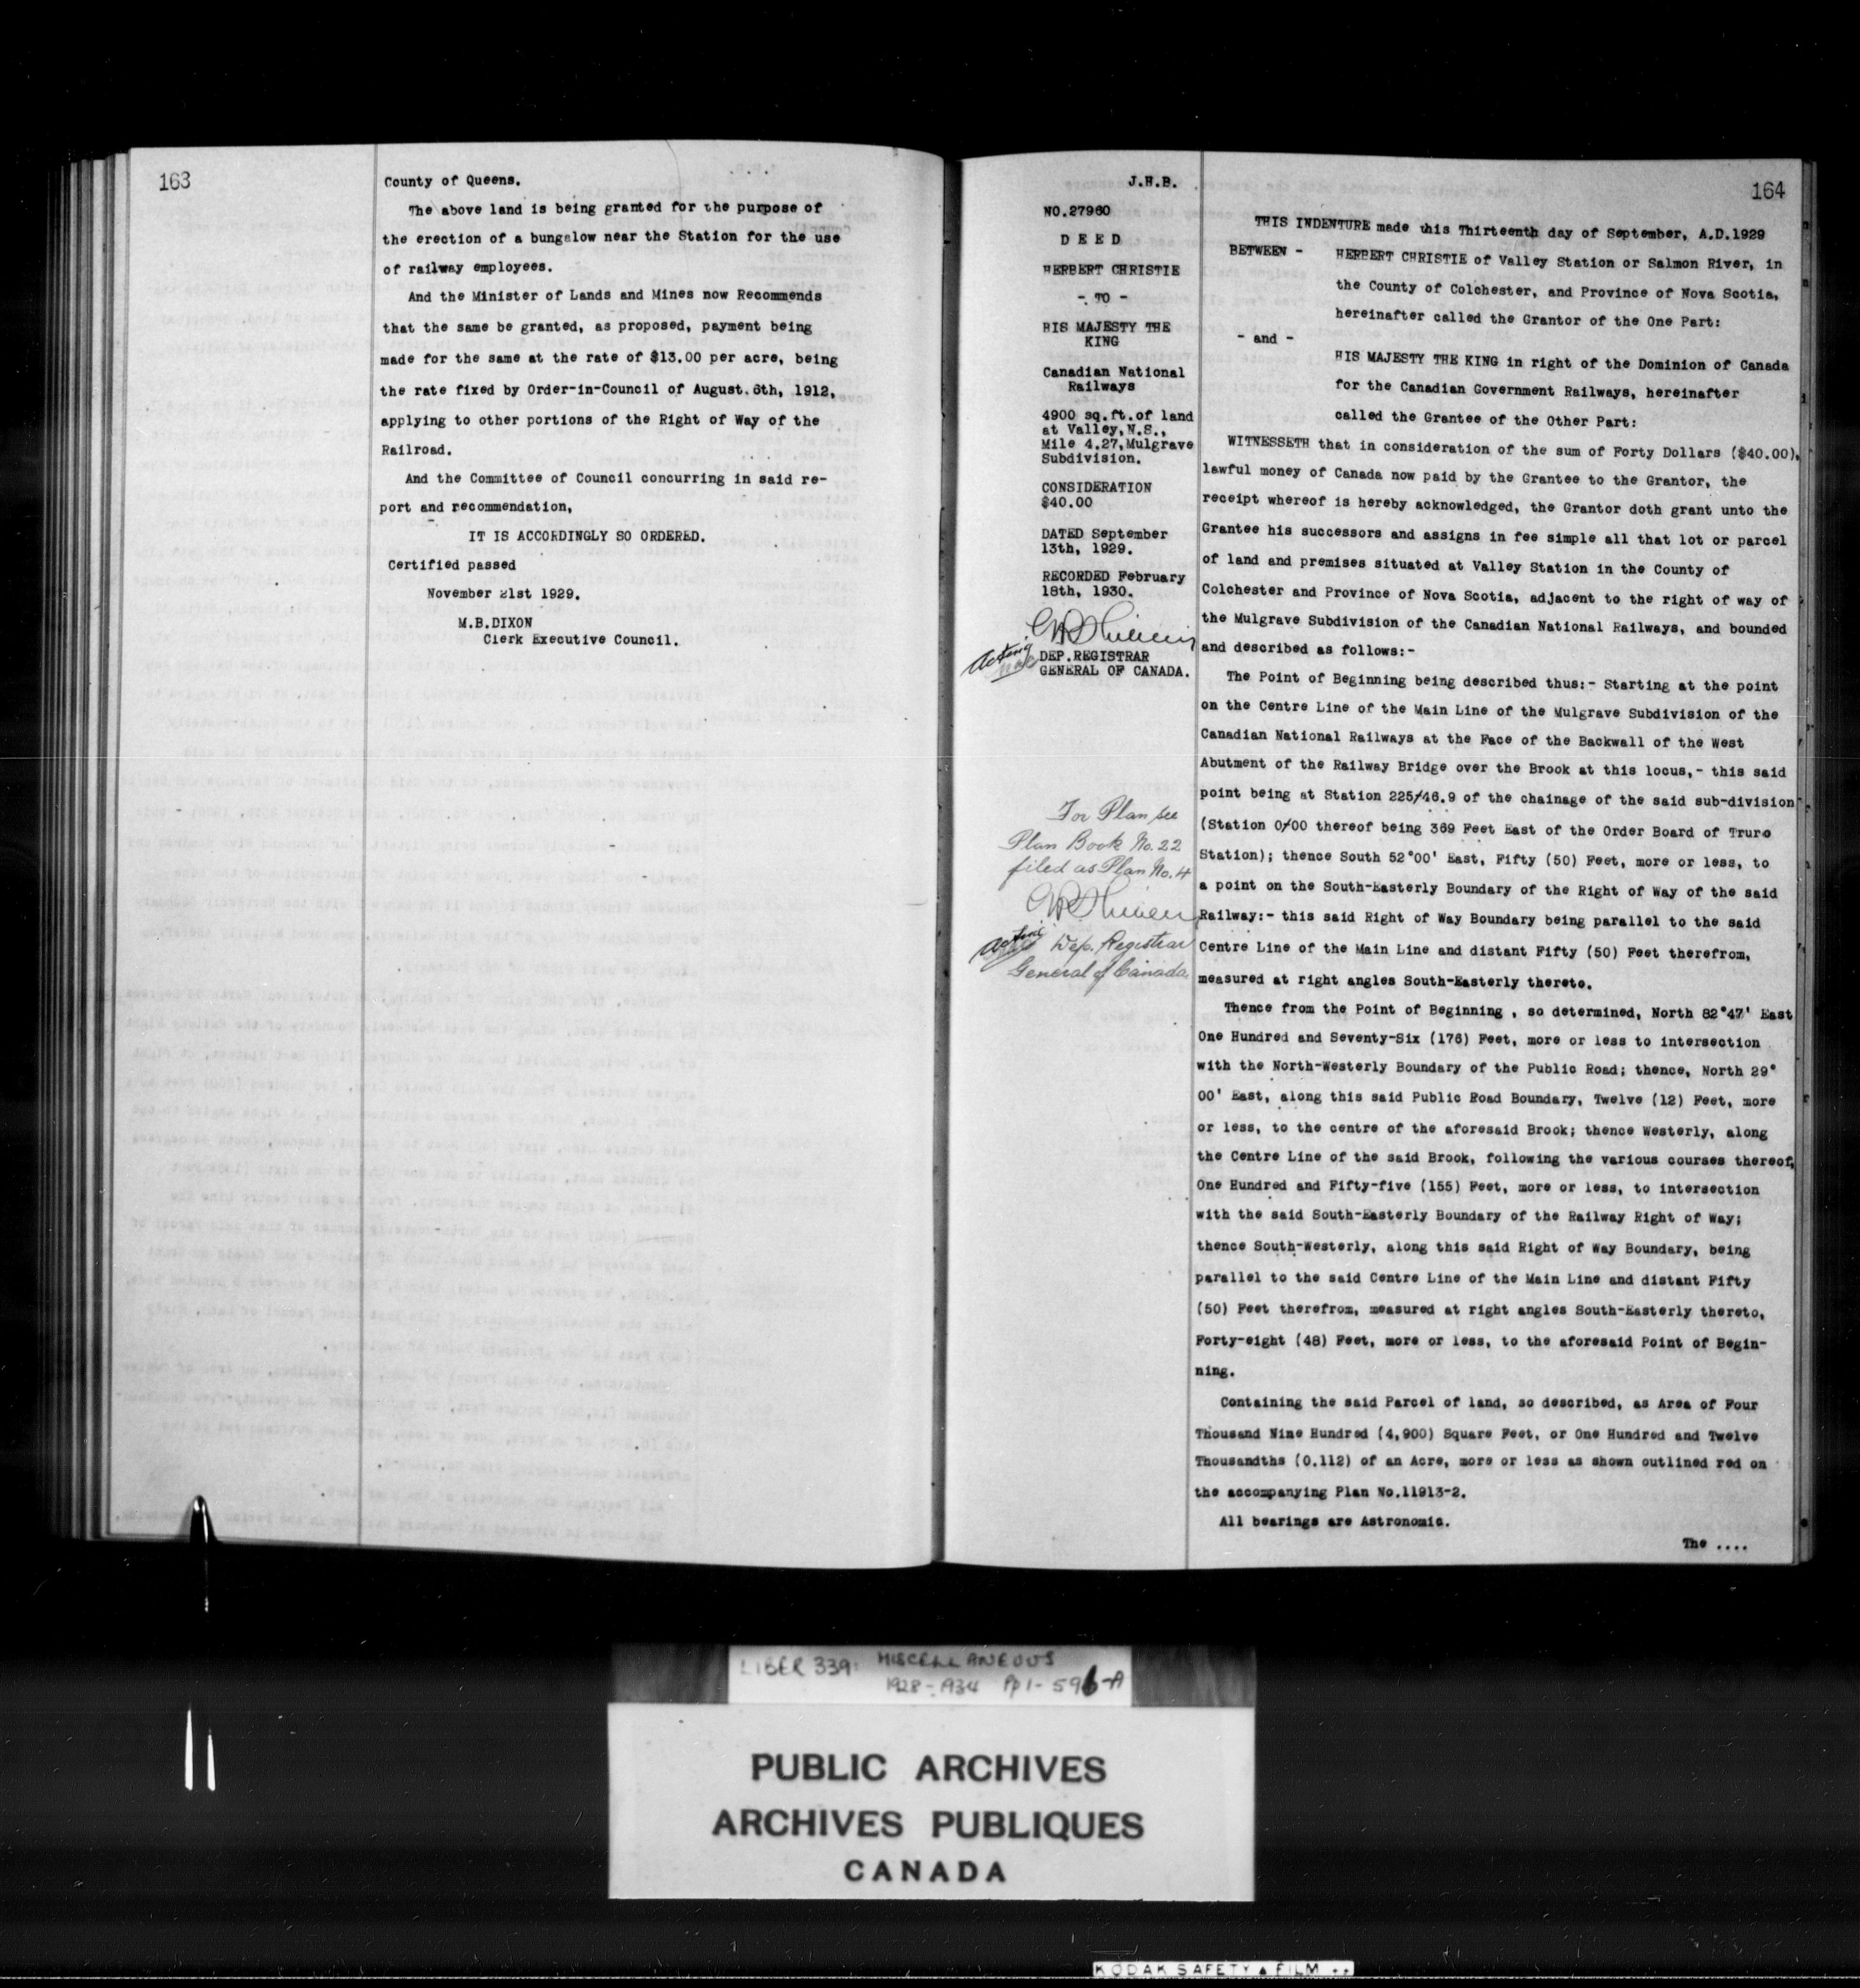 163
County of Queens.
The above land is being granted for the purpose of
the erection of a bungalow near the Station for the use
of railway employees.
And the Minister of Lands and Mines now Recommends
that the same be granted, as proposed, payment being
made for the same at the rate of $13.00 per acre, being
the rate fixed by Order-in-Council of August.6th, 1912,
applying to other portions of the Right of Way of the
Railroad.
And the Committee of Council concurring in said re-
port and recommendation,
IT IS ACCORDINGLY SO ORDERED.
Certified passed
November 21st 1929.
M.B.DIXON
Clerk Executive Council.
J.H.B.
NO.27960
D E E D
HERBERT CHRISTIE
- TO -
HIS MAJESTY THE
KING
Canadian National
Railways
4900 sq.ft.of land
at Valley,N.S.,
Mile 4.27,Mulgrave
Subdivision.
CONSIDERATION
$40.00
DATED September
13th, 1929.
RECORDED February
18th, 1930.
Acting
DEP.REGISTRAR
GENERAL OF CANADA.
For Plan see
Plan Book No. 22
filed as Plan No. 4
Acting Dep. Registrar
General of Canada
164
THIS INDENTURE made this Thirteenth day of September, A.D.1929
BETWEEN - HERBERT CHRISTIE of Valley Station or Salmon River, in
the County of Colchester, and Province of Nova Scotia,
hereinafter called the Grantor of the One Part:
- and -
HIS MAJESTY THE KING in right of the Dominion of Canada
for the Canadian Government Railways, hereinafter
called the Grantee of the Other Part:
WITNESSETH that in consideration of the sum of Forty Dollars ($40.00),
lawful money of Canada now paid by the Grantee to the Grantor, the
receipt whereof is hereby acknowledged, the Grantor doth grant unto the
Grantee his successors and assigns in fee simple all that lot or parcel
of land and premises situated at Valley Station in the County of
Colchester and Province of Nova Scotia, adjacent to the right of way of
the Mulgrave Subdivision of the Canadian National Railways, and bounded
and described as follows:-
The Point of Beginning being described thus:- Starting at the point
on the Centre Line of the Main Line of the Mulgrave Subdivision of the
Canadian National Railways at the Face of the Backwall of the West
Abutment of the Railway Bridge over the Brook at this locus,- this said
point being at Station 225/46.9 of the chainage of the said sub-division
(Station 0/00 thereof being 369 Feet East of the Order Board of Truro
Station); thence South 52°00' East, Fifty (50) Feet, more or less, to
a point on the South-Easterly Boundary of the Right of Way of the said
Railway:- this said Right of Way Boundary being parallel to the said
Centre Line of the Main Line and distant Fifty (50) Feet therefrom,
measured at right angles South-Easterly thereto.
Thence from the Point of Beginning , so determined, North 82°47' East
One Hundred and Seventy-Six (176) Feet, more or less to intersection
with the North-Westerly Boundary of the Public Road; thence, North 29°
00' East, along this said Public Road Boundary, Twelve (12) Feet, more
or less, to the centre of the aforesaid Brook; thence Westerly, along
the Centre Line of the said Brook, following the various courses thereof,
One Hundred and Fifty-five (155) Feet, more or less, to intersection
with the said South-Easterly Boundary of the Railway Right of Way;
thence South-Westerly, along this said Right of Way Boundary, being
parallel to the said Centre Line of the Main Line and distant Fifty
(50) Feet therefrom, measured at right angles South-Easterly thereto,
Forty-eight (48) Feet, more or less, to the aforesaid Point of Begin-
ning.
Containing the said Parcel of land, so described, as Area of Four
Thousand Nine Hundred (4,900) Square Feet, or One Hundred and Twelve
Thousandths (0.112) of an Acre, more or less as shown outlined red on
the accompanying Plan No.11913-2.
All bearings are Astronomic.
The ....
LIBER 339: MISCELLANEOUS
1928-1934 Pp 1-596-A
PUBLIC ARCHIVES
ARCHIVES PUBLIQUES
CANADA
KODAK SAFETY FILM